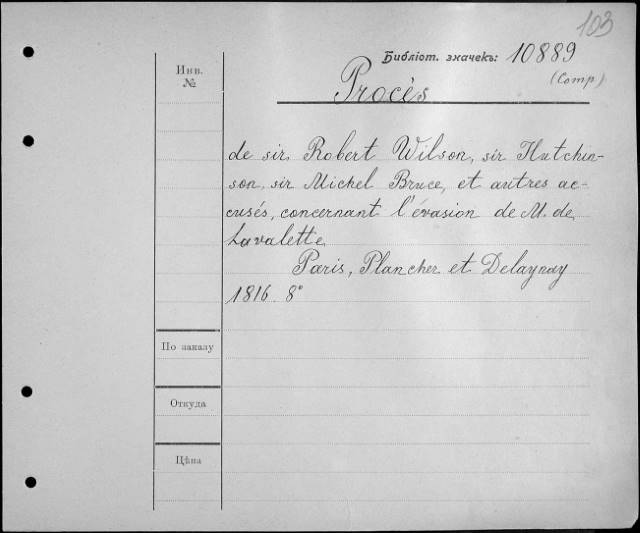 103
Библіот. значекъ: 10889
(Comp)
Инв.
№
Procès
de sir Robert Wilson, sir Hutchin-
son, sir Michel Bruce, et autres ac-
cusés, concernant l'évasion de M. de
Lavalette.
Paris, Plancher et Delaynay
1816. 8°
По заказу
Откуда
Цѣна